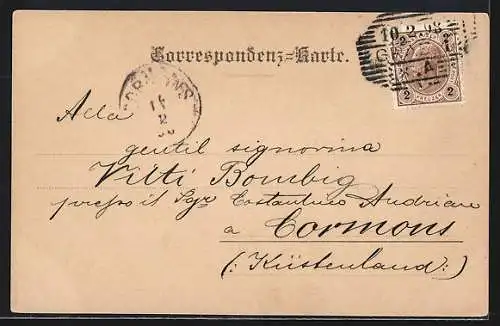 10.2.98
2 2
Correspondenz-Karte.
CORMONS
11
2
98
Alla
gentil signorina
Vitti Bombig
presso il Sigr Costantino Andriani
a Cormons
(: Küstenland :)